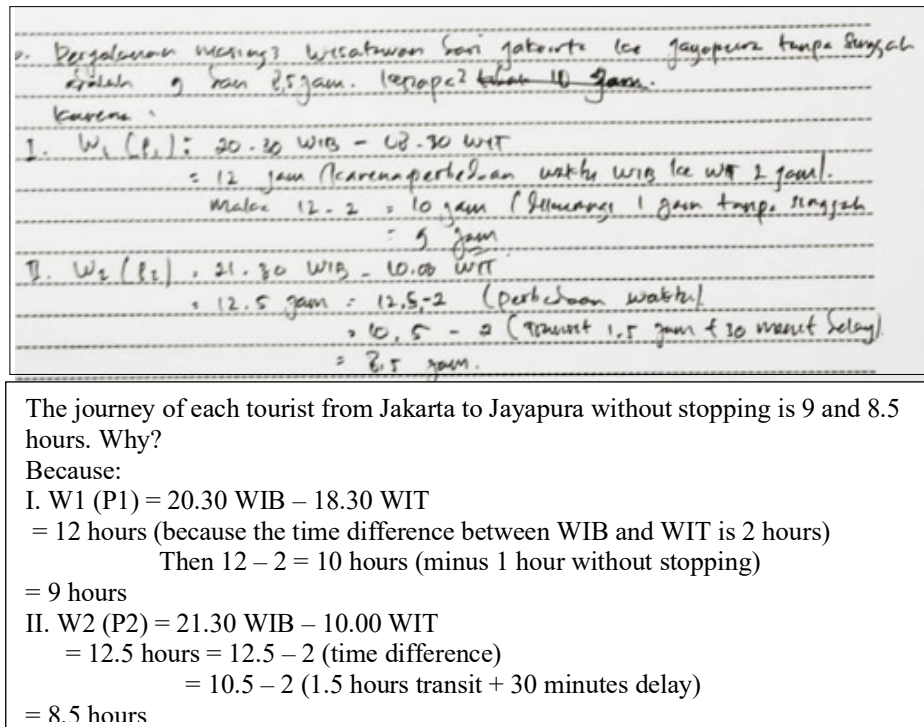 Pergalanan masing2 wisatawan dari jakarta ke jayapura tanpa singgah
adalah 9 dan 8,5 jam. kenapa?
karena :
I. W1 (P1) : 20.30 WIB - 08.30 WIT
= 12 jam (karena perbedaan waktu WIB ke WIT 2 jam).
Maka 12 - 2 = 10 jam (dikurangi 1 jam tanpa singgah
= 9 jam
II. W2 (P2) : 21.30 WIB - 10.00 WIT
= 12.5 jam = 12.5 - 2 (perbedaan waktu)
= 10,5 - 2 (transit 1.5 jam + 30 menit delay)
= 8.5 jam.
The journey of each tourist from Jakarta to Jayapura without stopping is 9 and 8.5
hours. Why?
Because:
I. W1 (P1) = 20.30 WIB – 18.30 WIT
= 12 hours (because the time difference between WIB and WIT is 2 hours)
Then 12 – 2 = 10 hours (minus 1 hour without stopping)
= 9 hours
II. W2 (P2) = 21.30 WIB – 10.00 WIT
= 12.5 hours = 12.5 – 2 (time difference)
= 10.5 – 2 (1.5 hours transit + 30 minutes delay)
= 8.5 hours